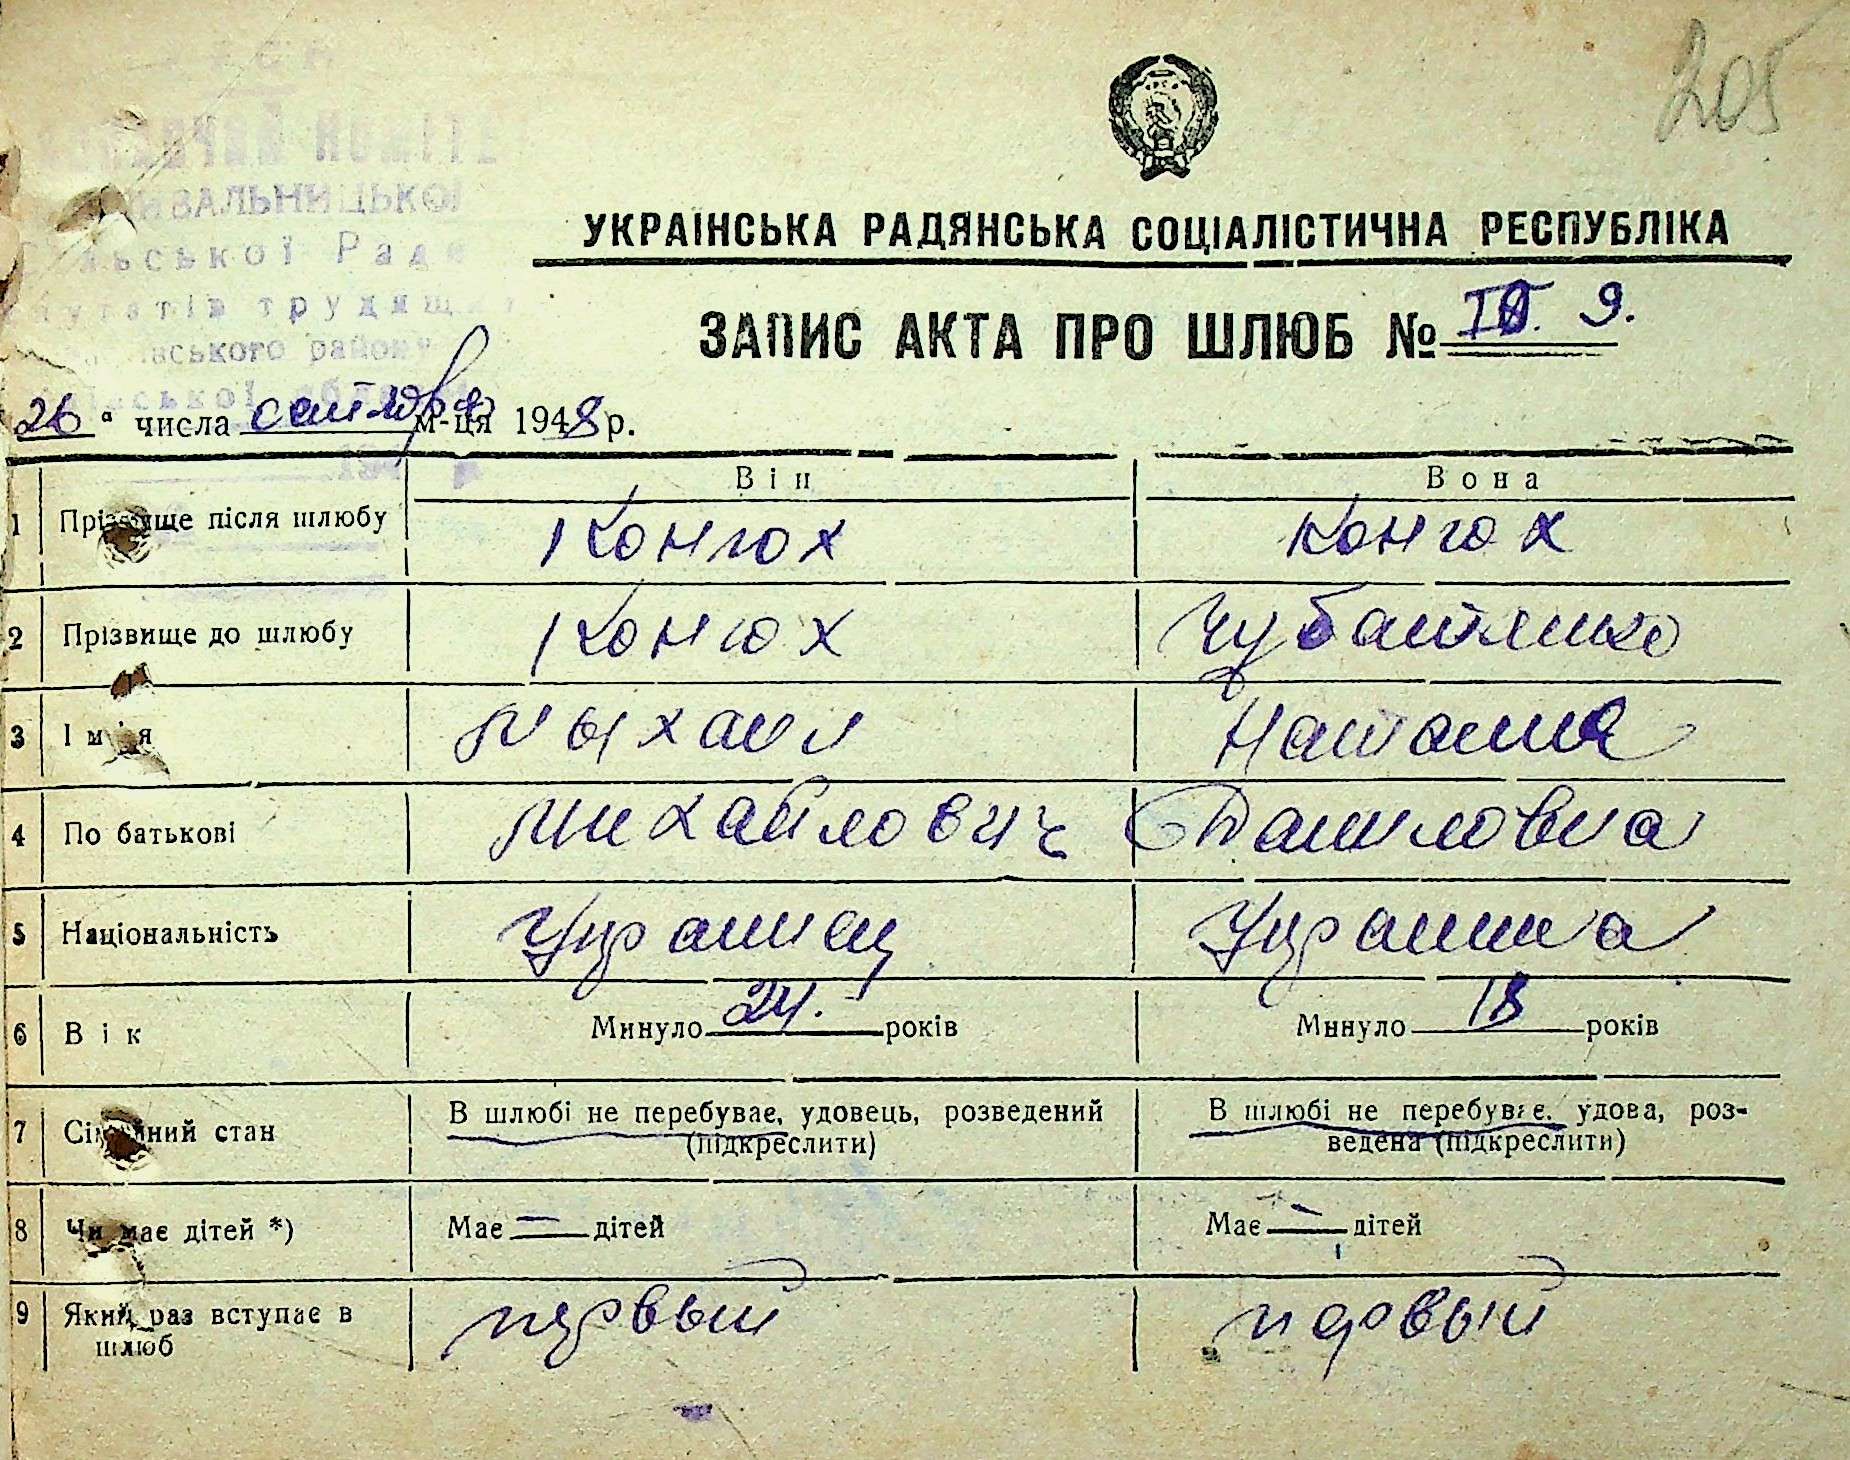 205
УРСР
Виконавчий Комітет
ЗАЛЬНИЦЬКОЇ
Сільської Ради
депутатів трудящих
району
області
УКРАЇНСЬКА РАДЯНСЬКА СОЦІАЛІСТИЧНА РЕСПУБЛІКА
ЗАПИС АКТА ПРО ШЛЮБ № 9.
26 " числа сентября м-ця 1948 р.
Він Вона
1 Прізвище після шлюбу Конюх Конюх
2 Прізвище до шлюбу Конюх Чубатенко
3 Ім'я Мыхаил Наталия
4 По батькові Михайлович Даниловна
5 Національність Украинец Украинка
6 Вік Минуло 24. років Минуло 18 років
7 Сімейний стан В шлюбі не перебуває, удовець, розведений (підкреслити) В шлюбі не перебуває, удова, роз-
ведена (підкреслити)
8 Чи має дітей *) Має — дітей Має — дітей
9 Який раз вступає в шлюб первый первый